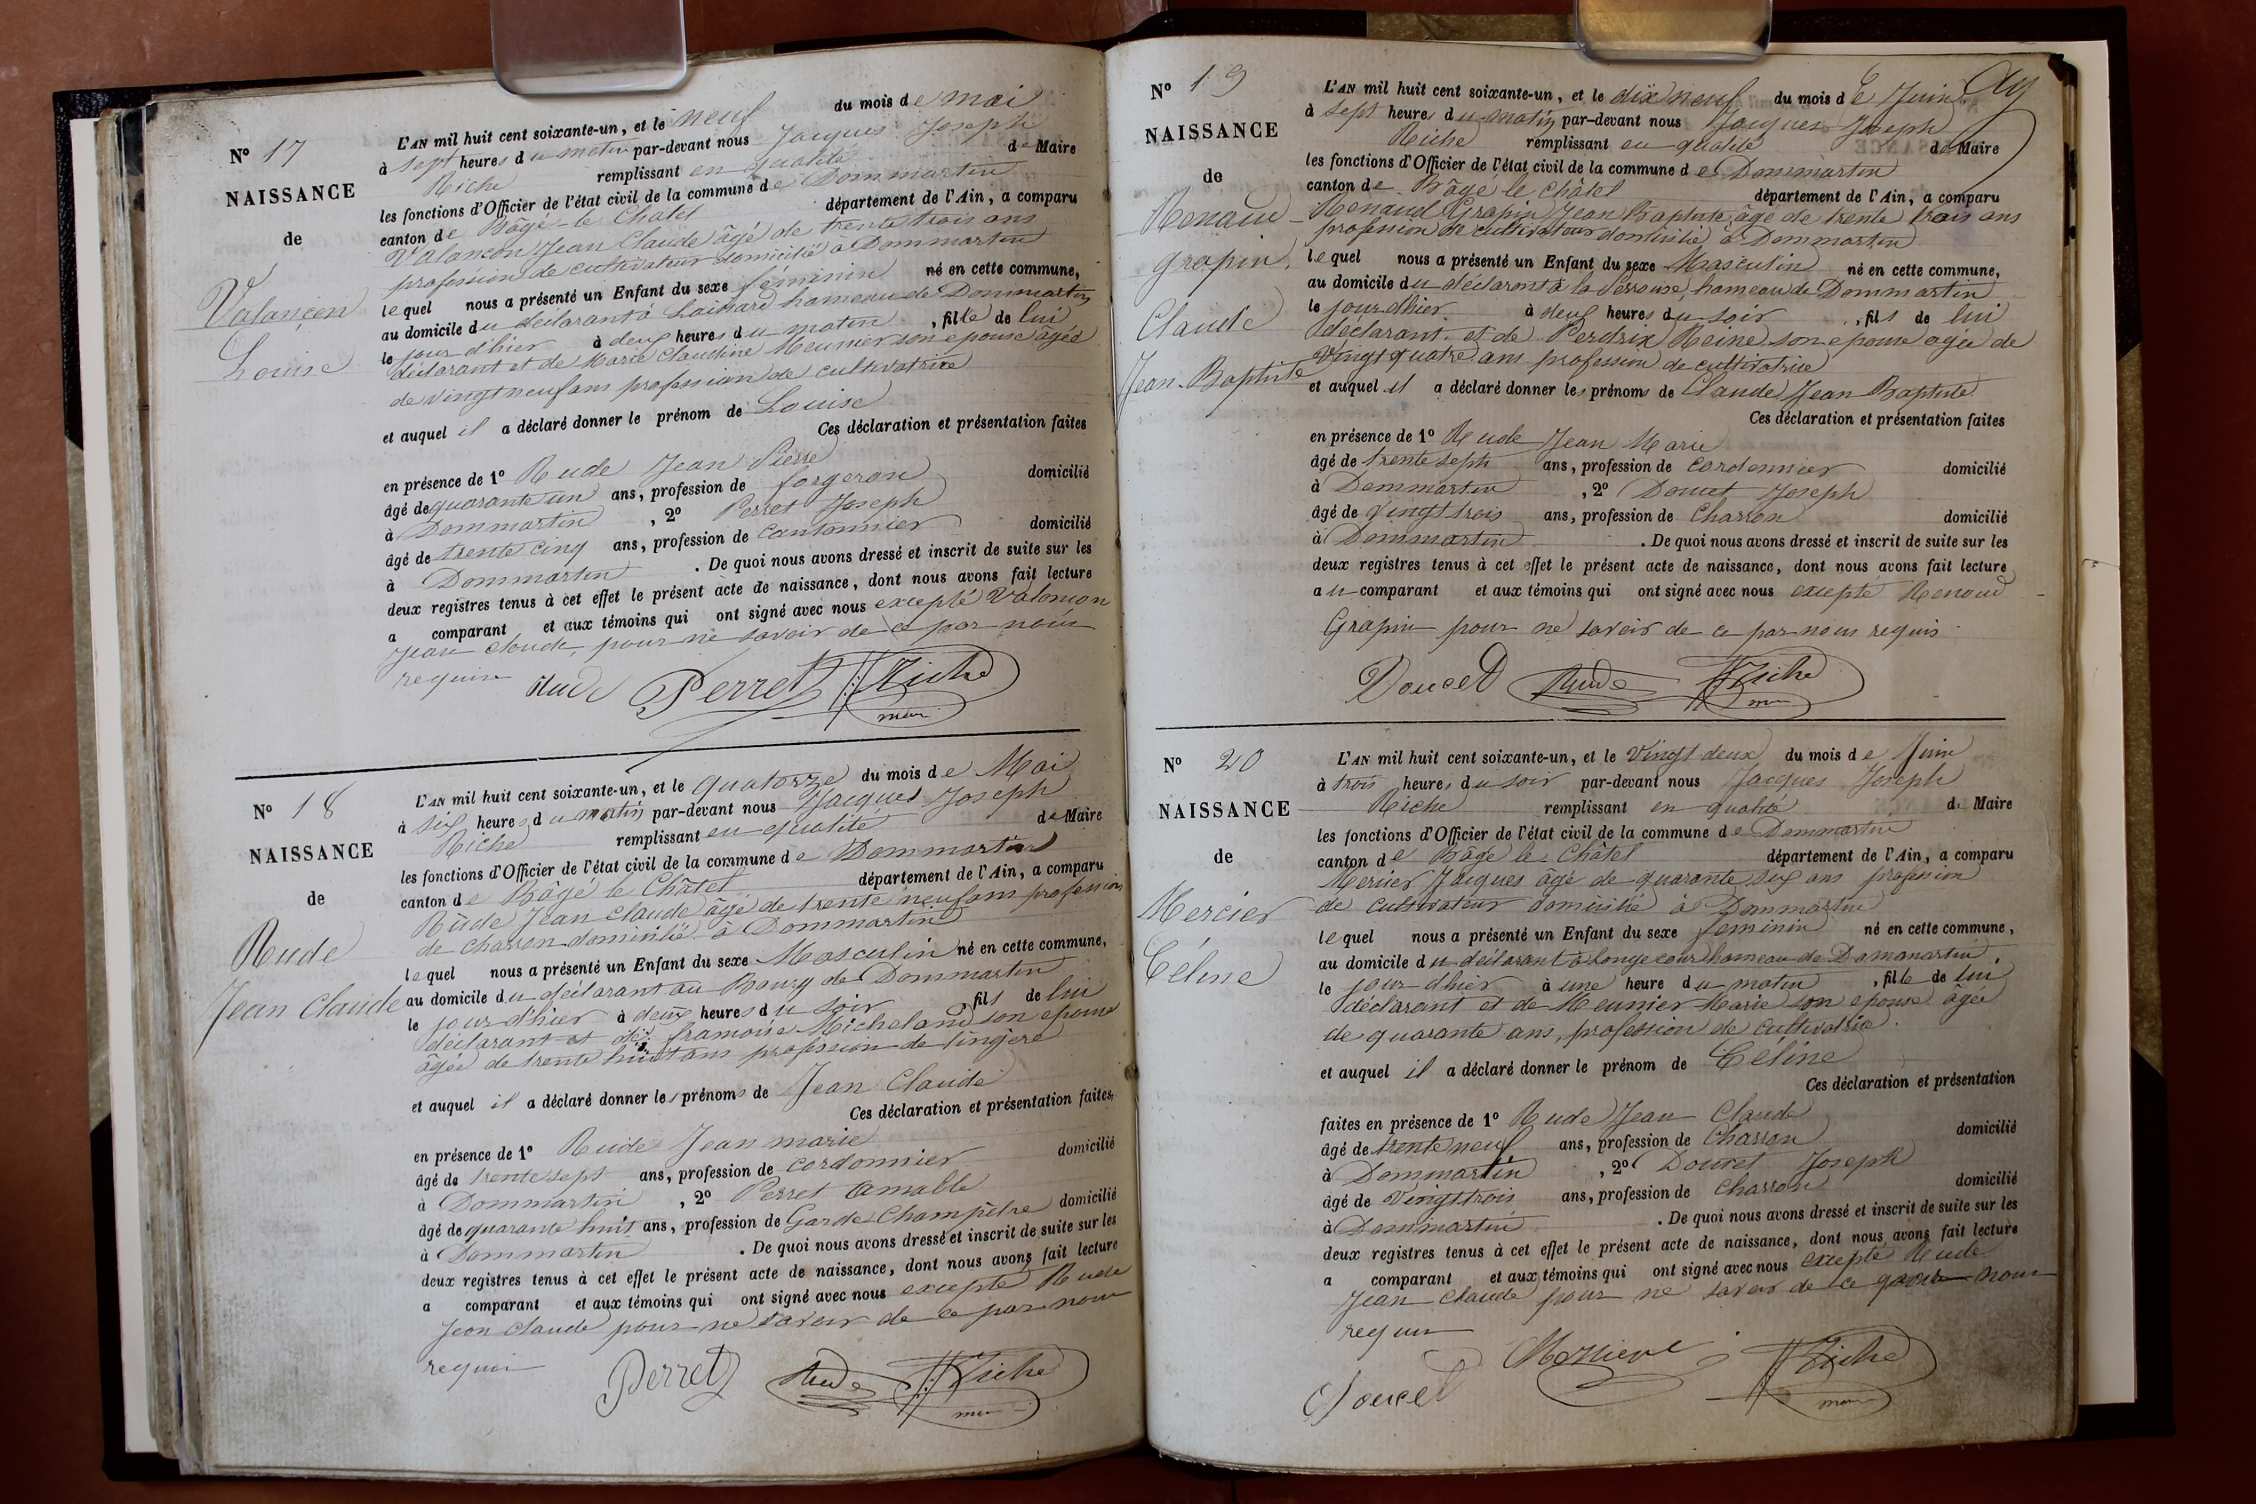 N° 17
NAISSANCE
de
Valançon
Louise
L'AN mil huit cent soixante-un, et le neuf du mois de mai
à sept heures du matin par-devant nous Jacques Joseph
Riche remplissant en qualité de Maire
les fonctions d'Officier de l'état civil de la commune de Dommartin
canton de Bâgé-le Chatel département de l'Ain, a comparu
Valancon Jean Claude âgé de trente trois ans
profession de cultivateur domicilié à Dommartin
lequel nous a présenté un Enfant du sexe féminin né en cette commune,
au domicile du déclarant à hameau de Dommartin
le jour d'hier à deux heures du matin, fille de lui
déclarant et de Marie Claudine Meunier son épouse âgée
de vingt neuf ans profession de cultivatrice
et auquel il a déclaré donner le prénom de Louise
Ces déclaration et présentation faites
en présence de 1° Rude Jean Pierre
âgé de quarante un ans, profession de forgeron domicilié
à Dommartin, 2° Perret Joseph
âgé de trente cinq ans, profession de cantonnier domicilié
à Dommartin. De quoi nous avons dressé et inscrit de suite sur les
deux registres tenus à cet effet le présent acte de naissance, dont nous avons fait lecture
a comparant et aux témoins qui ont signé avec nous excepté Valonson
Jean Claude, pour ne savoir de ce par nous
requis
Rude Perret JJ Riche
maire
N° 18
NAISSANCE
de
Rude
Jean Claude
L'AN mil huit cent soixante-un, et le quatorze du mois de Mai
à six heures du matin par-devant nous Jacques Joseph
Riche remplissant en qualité de Maire
les fonctions d'Officier de l'état civil de la commune de Dommartin
canton de Bâgé le Châtel département de l'Ain, a comparu
Rude Jean Claude âgé de trente neuf ans profession
de charron domicilié à Dommartin
lequel nous a présenté un Enfant du sexe Masculin né en cette commune,
au domicile du déclarant au Bourg de Dommartin
le jour d'hier à deux heures du soir, fils de lui
déclarant et de framoise Micheland son épouse
âgée de trente huit ans profession de lingère
et auquel il a déclaré donner les prénoms de Jean Claude
Ces déclaration et présentation faites,
en présence de 1° Rude Jean marie
âgé de trente sept ans, profession de cordonnier domicilié
à Dommartin, 2° Perret Amable
âgé de quarante huit ans, profession de Garde Champêtre domicilié
à Dommartin. De quoi nous avons dressé et inscrit de suite sur les
deux registres tenus à cet effet le présent acte de naissance, dont nous avons fait lecture
a comparant et aux témoins qui ont signé avec nous excepté Rude
Jean Claude pour ne savoir de ce par nous
requis
Perret Rude JJ Riche
maire
N° 19
NAISSANCE
de
Renaud
Grapin,
Claude
Jean-Baptiste
L'AN mil huit cent soixante-un, et le dix neuf du mois de Juin
à sept heures du matin par-devant nous Jacques Joseph
Riche remplissant en qualité de Maire
les fonctions d'Officier de l'état civil de la commune de Dommartin
canton de Bâgé le Châtel département de l'Ain, a comparu
Renaud Grapin Jean Baptiste âgé de trente trois ans
profession de cultivateur domicilié à Dommartin
lequel nous a présenté un Enfant du sexe Masculin né en cette commune,
au domicile du déclarant à la hameau de Dommartin
le jour d'hier. à deux heures du soir, fils de lui
déclarant et de Perdrix Reine son épouse âgée de
Vingt quatre ans profession de cultivatrice
et auquel il a déclaré donner les prénoms de Claude Jean Baptiste
Ces déclaration et présentation faites
en présence de 1° Rude Jean Marie
âgé de trente sept ans, profession de cordonnier domicilié
à Dommartin, 2° Doucet Joseph
âgé de Vingt trois ans, profession de Charron domicilié
à Dommartin. De quoi nous avons dressé et inscrit de suite sur les
deux registres tenus à cet effet le présent acte de naissance, dont nous avons fait lecture
au comparant et aux témoins qui ont signé avec nous excepté Renaud
Grapin pour ne savoir de ce par nous requis
Doucet Rude JJ Riche
N° 20
NAISSANCE
de
Mercier
Céline
L'AN mil huit cent soixante-un, et le Vingt deux du mois de Juin
à trois heures du soir par-devant nous Jacques Joseph
Riche remplissant en qualité de Maire
les fonctions d'Officier de l'état civil de la commune de Dommartin
canton de Bâgé le Châtel département de l'Ain, a comparu
Mercier Jacques âgé de quarante six ans profession
de cultivateur domicilié à Dommartin
lequel nous a présenté un Enfant du sexe feminin né en cette commune,
au domicile du déclarant à longecour hameau de Dommartin
le jour d'hier à une heure du matin, fille de lui
déclarant et de Meunier Marie son épouse âgée
de quarante ans, profession de cultivatrice.
et auquel il a déclaré donner le prénom de Céline
Ces déclaration et présentation
faites en présence de 1° Rude Jean Claude
âgé de trente neuf ans, profession de Charron domicilié
à Dommartin, 2° Doucet Joseph
âgé de Vingt trois ans, profession de Charron domicilié
à Dommartin. De quoi nous avons dressé et inscrit de suite sur les
deux registres tenus à cet effet le présent acte de naissance, dont nous avons fait lecture
a comparant et aux témoins qui ont signé avec nous excepté Rude
Jean Claude pour ne savoir de ce par nous
requis
Doucet JJ Riche
maire